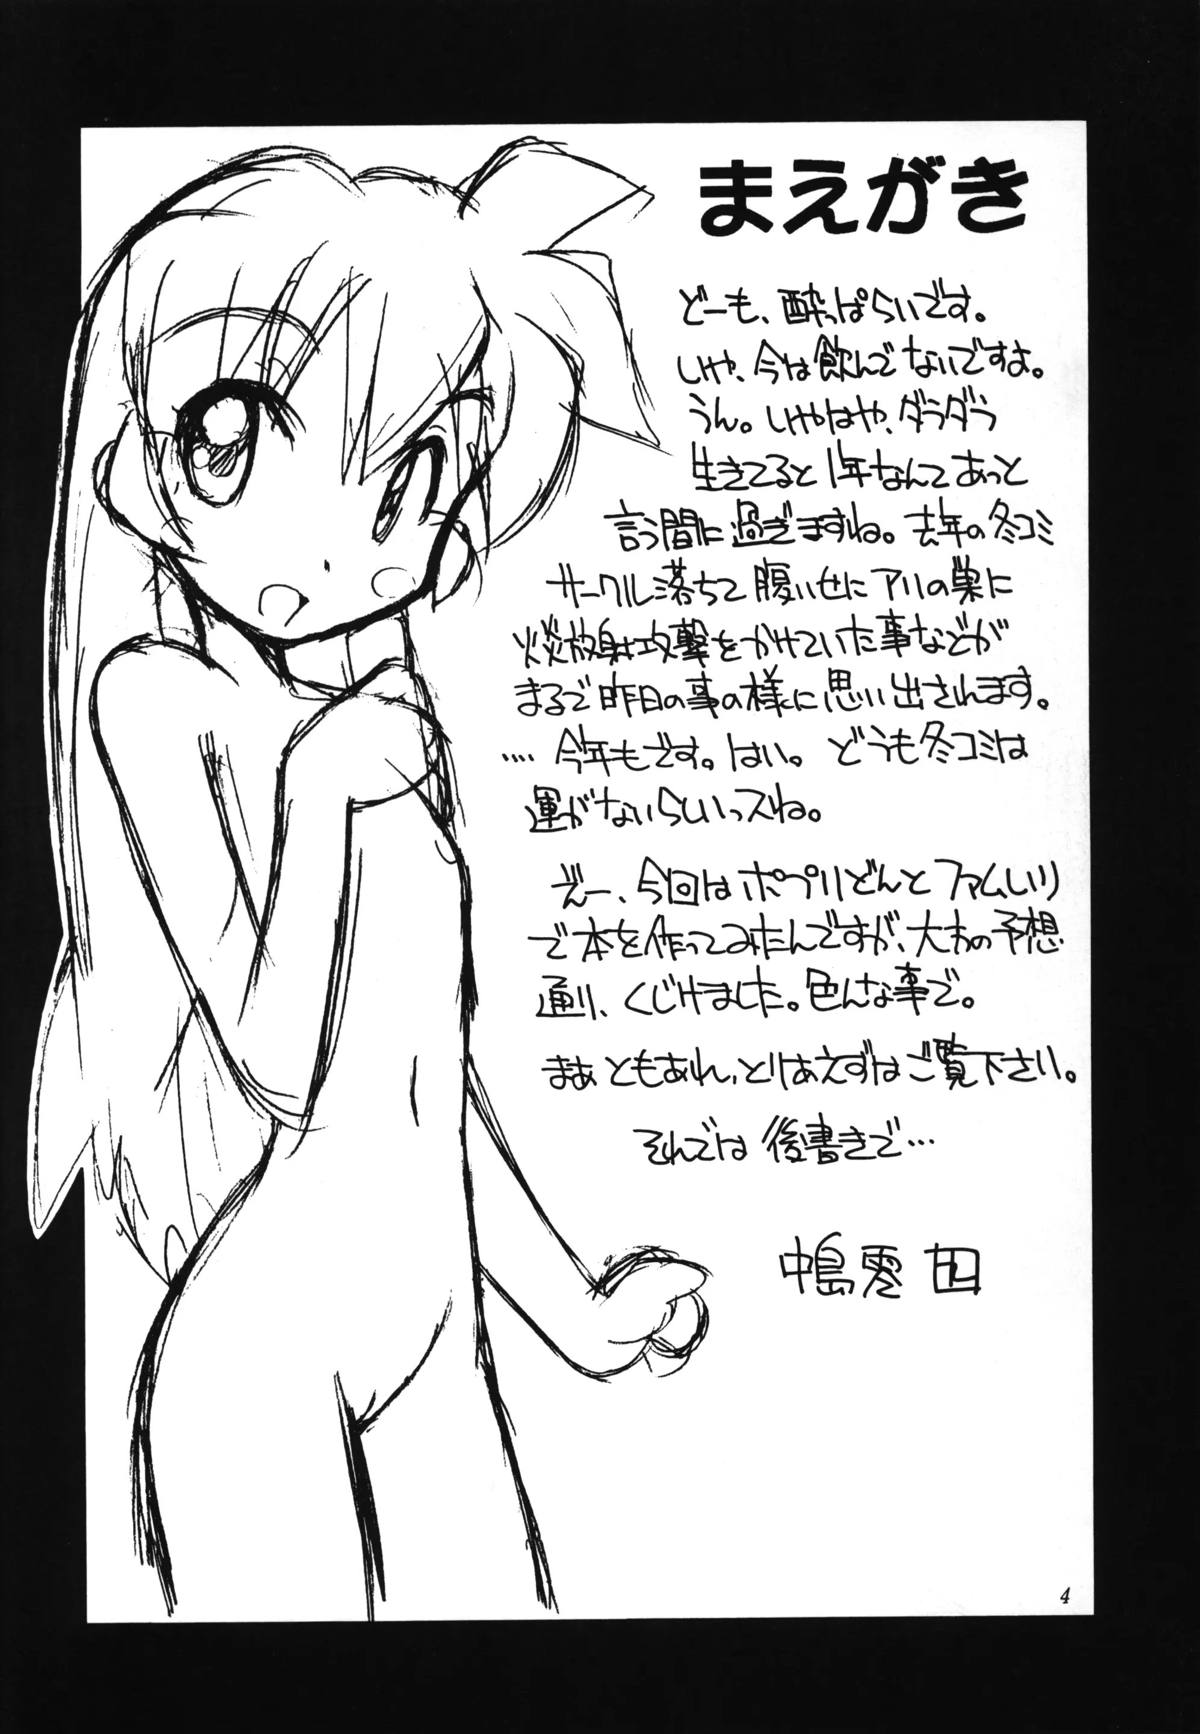 まえがき
どーも、酔っぱらいです。
いや、今は飲んでないですよ。
うん。いやはや、ダラダラ
生きてると1年なんてあっと
言う間に過ぎますね。去年の冬コミ
サークル落ちて腹いせにアリの巣に
火炎放射攻撃をかけていた事などが
まるで昨日の事の様に思い出されます。
…. 今年もです。はい。どうも冬コミは
運がないらしいっスね。
でー、今回はポプリどんとファムしり
で本を作ってみたんですが、大方の予想
通り、くじけました。色んな事で。
まぁともあれ、とりあえずはご覧下さい。
それでは後書きで…
中島零
4